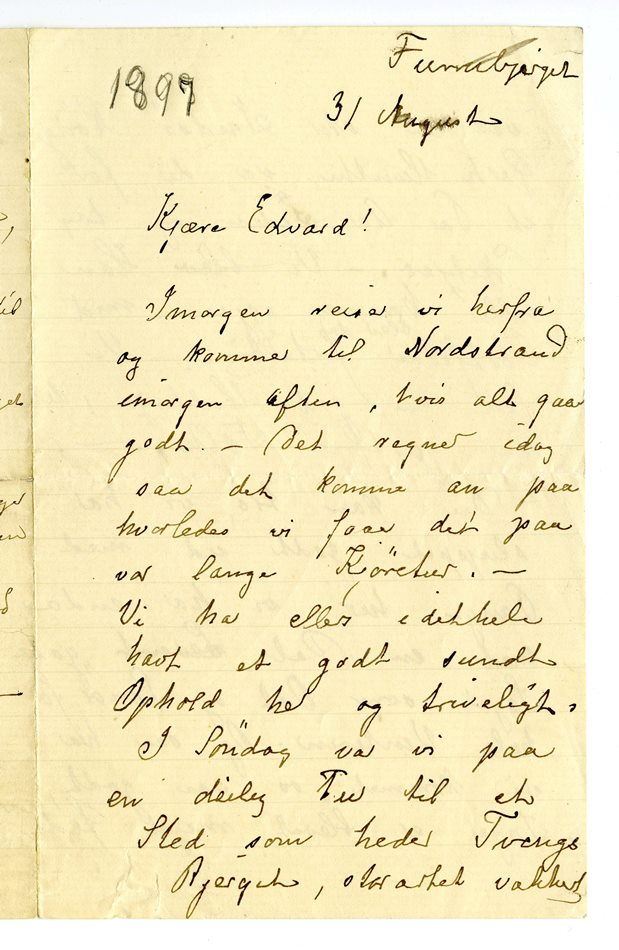 1897
Furubjerget
31 August
Kjære Edvard!
Imorgen reise vi herfra
og komme til Nordstrand
imorgen Aften, hvis alt gaar
godt. – Det regner idag
saa det komme an paa
hvorledes vi faar det paa
vor lange Kjöretur. –
Vi ha ellers idethele
havt et godt sundt
Ophold her og triveligt.
I Söndag var vi paa
en deilig Tur til et
Sted som heder Tvengs
Bjerget, storartet vakkert
til